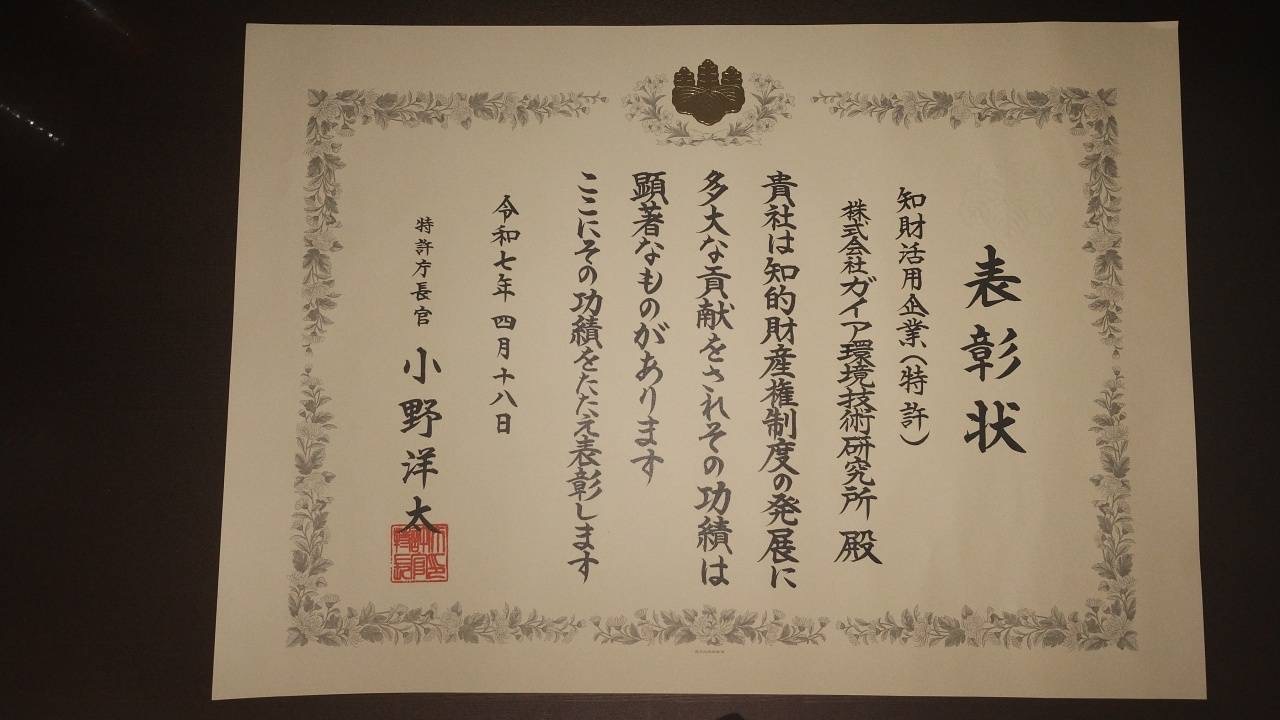 表彰状
知財活用企業(特許)
株式会社ガイア環境技術研究所 殿
貴社は知的財産権制度の発展に
多大な貢献をされその功績は
顕著なものがあります
ここにその功績をたたえ表彰します
令和七年 四月十八日
特許庁長官 小野洋太